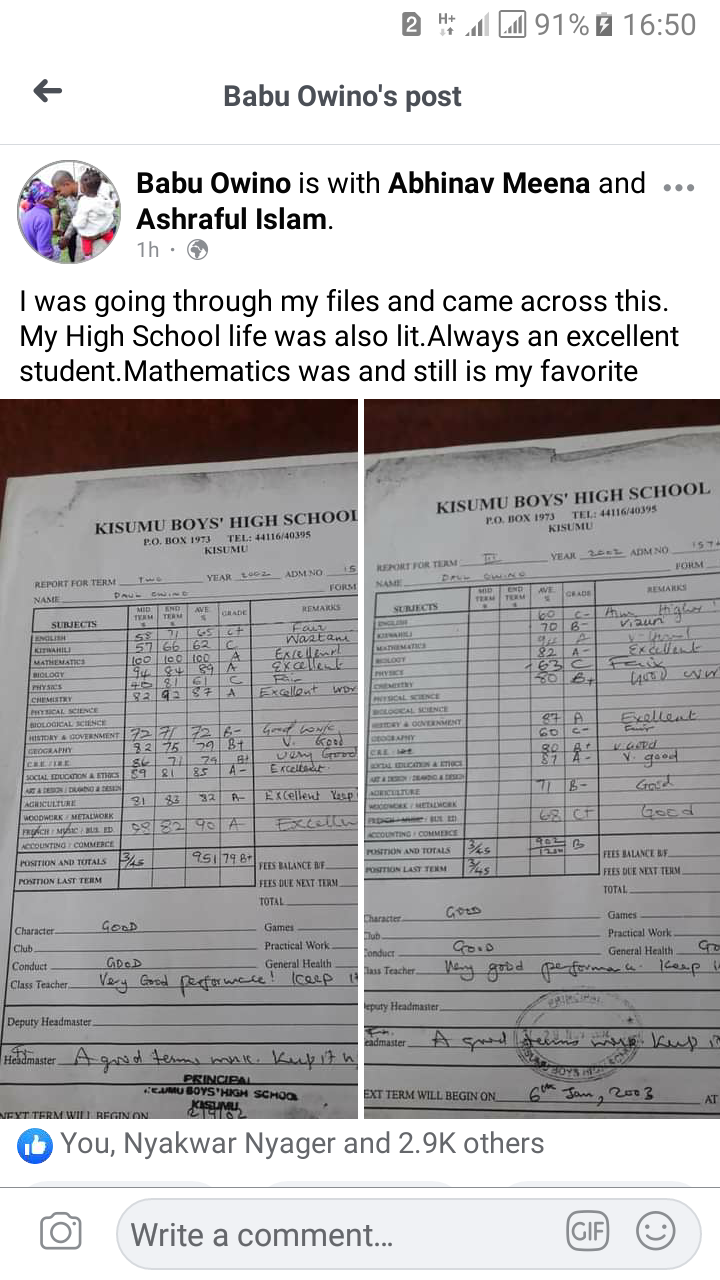 2 H+ 91% 16:50
Babu Owino's post
Babu Owino is with Abhinav Meena and
Ashraful Islam.
1h
I was going through my files and came across this.
My High School life was also lit.Always an excellent
student.Mathematics was and still is my favorite
KISUMU BOYS' HIGH SCHOOL
P.O. BOX 1973 TEL: 44116/40395
KISUMU
REPORT FOR TERM TWO YEAR 2002 ADM NO 15
NAME PAUL OWINO FORM
SUBJECTS MID TERM % END TERM % AVE. % GRADE REMARKS
ENGLISH 58 71 65 C+ Fair
KISWAHILI 57 66 62 C Wastani
MATHEMATICS 100 100 100 A Excellent
BIOLOGY 94 84 89 A Excellent
PHYSICS 40 81 61 C Fair
CHEMISTRY 82 92 87 A Excellent work
PHYSICAL SCIENCE
BIOLOGICAL SCIENCE
HISTORY & GOVERNMENT 72 71 72 B- Good work
GEOGRAPHY 82 75 79 B+ V. Good
C.R.E / I.R.E. 86 71 79 B+ Very Good
SOCIAL EDUCATION & ETHICS 89 81 85 A- Excellent.
ART & DESIGN / DRAWING & DESIGN
AGRICULTURE 81 83 82 A- Excellent Keep
WOODWORK / METALWORK
FRENCH / MUSIC / BUS. ED. 98 82 90 A Excelle
ACCOUNTING / COMMERCE
POSITION AND TOTALS 3/45 951 79 B+ FEES BALANCE B/F
POSITION LAST TERM FEES DUE NEXT TERM
TOTAL
Character GOOD Games
Club Practical Work
Conduct GOOD General Health
Class Teacher Very Good performance! Keep it
Deputy Headmaster
Headmaster A good terms work. Keep it u
PRINCIPAL
KISUMU BOYS' HIGH SCHOOL
KISUMU
NEXT TERM WILL BEGIN ON
KISUMU BOYS' HIGH SCHOOL
P.O. BOX 1973 TEL: 44116/40395
KISUMU
REPORT FOR TERM III YEAR 2002 ADM NO 157
NAME PAUL OWINO FORM
SUBJECTS MID TERM % END TERM % AVE. % GRADE REMARKS
ENGLISH 60 C- Aim Higher!
KISWAHILI 70 B- Vizuri
MATHEMATICS A
BIOLOGY 82 A- Excellent
PHYSICS 63 C Fair
CHEMISTRY 80 B+ Good
PHYSICAL SCIENCE
BIOLOGICAL SCIENCE
HISTORY & GOVERNMENT 87 A Exellent
GEOGRAPHY 60 C- Fair
C.R.E 80 B+ V. Good
SOCIAL EDUCATION & ETHICS 87 A- V. good
ART & DESIGN / DRAWING & DESIGN
AGRICULTURE 71 B- Good
WOODWORK / METALWORK
FRENCH / MUSIC / BUS. ED 68 C+ Good
ACCOUNTING / COMMERCE
POSITION AND TOTALS 3/45 902 B FEES BALANCE B/F
POSITION LAST TERM 3/45 FEES DUE NEXT TERM
TOTAL
Character GOOD Games
Club Practical Work
Conduct GOOD General Health Go
lass Teacher Very good performance. Keep i
eputy Headmaster
PRINCIPAL
eadmaster A good terms work. Keep it
EXT TERM WILL BEGIN ON 6th Jan, 2003 AT
You, Nyakwar Nyager and 2.9K others
Write a comment...
GIF